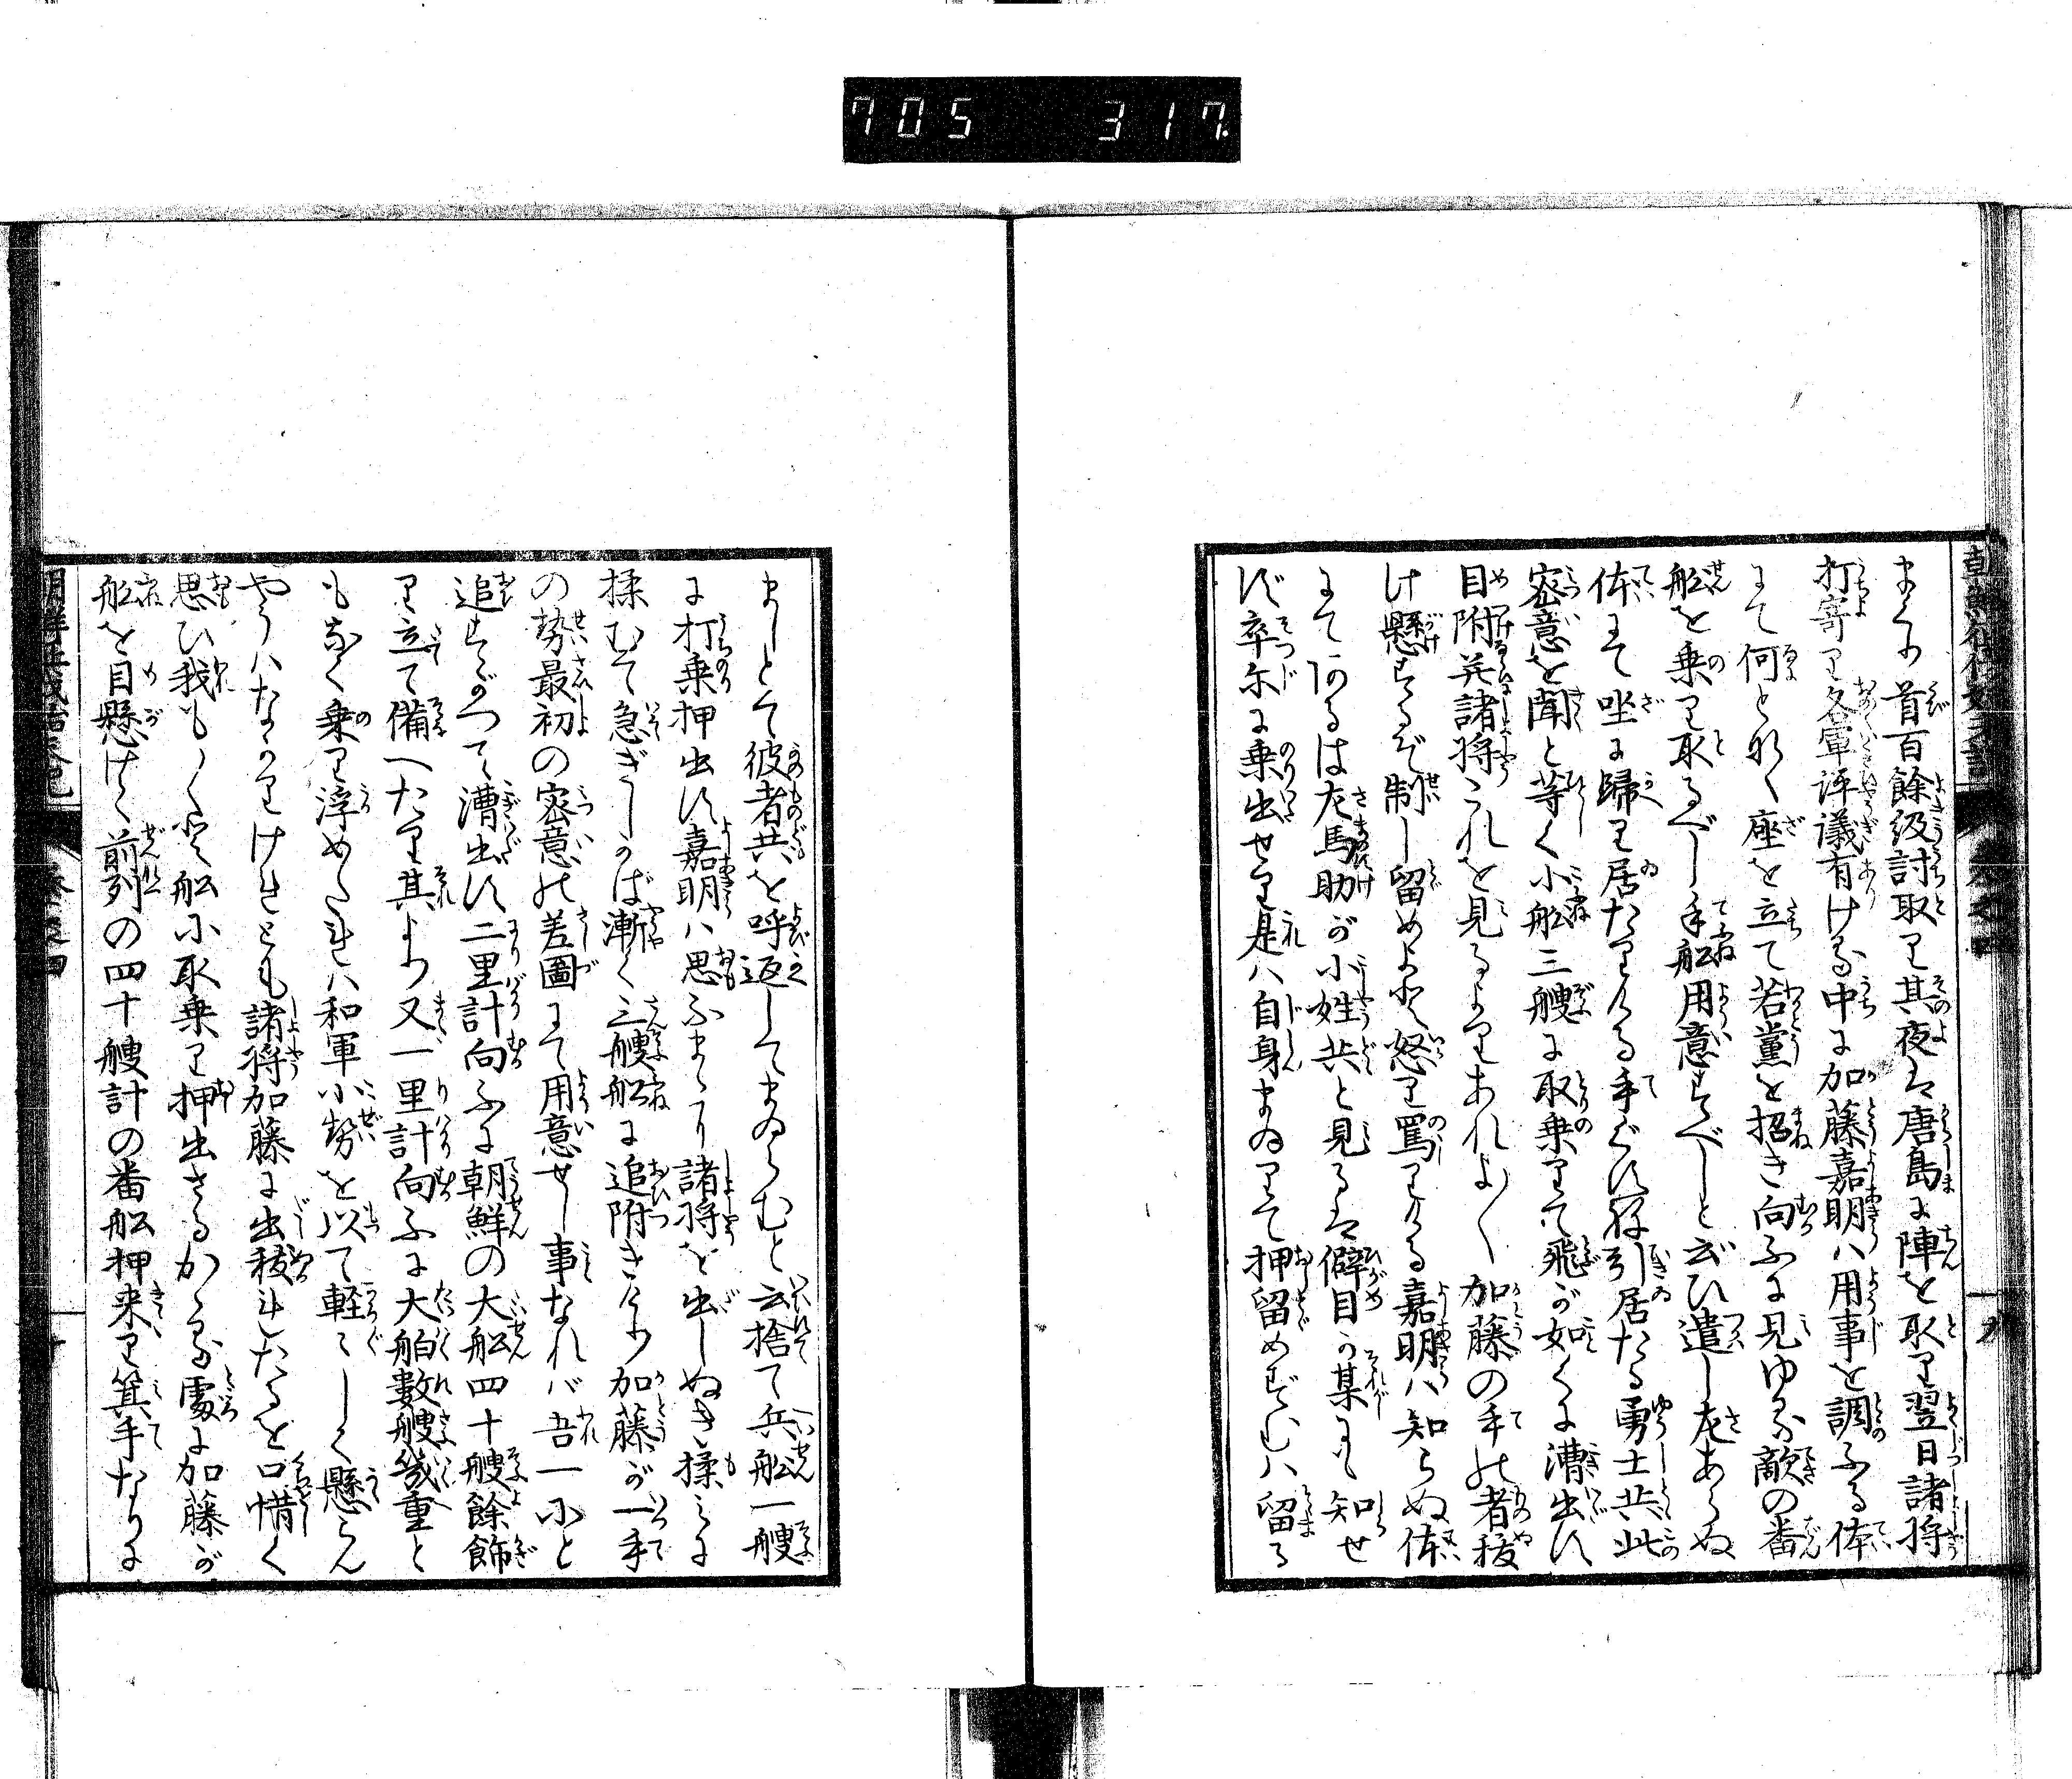 705 317
まくり首百餘級討取り其夜は唐島に陣を取り翌日諸将
打寄り各軍評議有ける中に加藤嘉明ハ用事を調ふる体
にて何となく座を立て若黨を招き向ふに見ゆる敵の番
船を乗り取るべし手船用意すべしと云ひ遣し左あらぬ
体にて坐に歸り居たりける手ぐすね引居たる勇士共此
密意を聞と等く小船三艘に取乗りて飛が如くに漕出す
目附并諸将これを見るよりあれよ〱加藤の手の者抜
け懸するぞ制し留めよと怒り罵りける嘉明ハ知らぬ体
にてあるは左馬助が小姓共と見るは僻目か某にも知せ
ず卒尓に乗出せり是ハ自身まゐりて押留めずむハ留る
ましとて彼者共を呼返してまゐらむと云捨て兵船一艘
に打乗押出す嘉明ハ思ふまゝに諸将を出しぬき揉みに
揉むて急ぎしかば漸く三艘船に追附きけり加藤が一手
の勢最初の密意の差圖にて用意せし事なれバ吾一にと
追すがつて漕出す二里計向ふに朝鮮の大船四十艘餘飾
り立て備へたり其より又一里計向ふに大舶數艘幾重と
もなく乗り浮めたれハ和軍小勢を以て軽々しく懸らん
やうハなかりけれとも諸将加藤に出抜れたるを口惜く
思ひ我も〱と船に取乗り押出さるかゝる處に加藤が
船を目懸けて前列の四十艘計の番船押来り箕手なりに